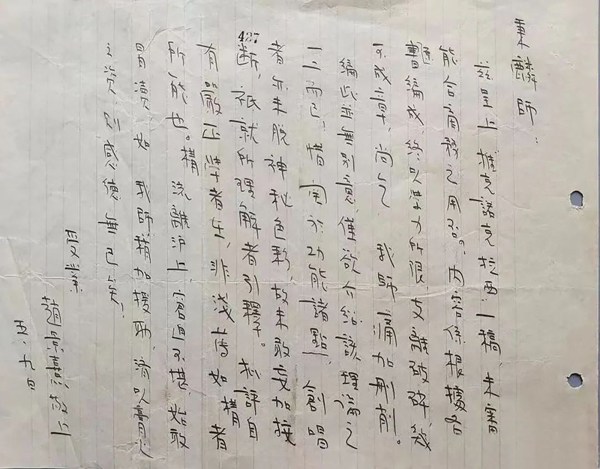 427
秉麟師：
茲呈上推克諾克拉西一稿，未審
能合商務之用否。內容係根據各
書編成，終以學力所限，支離破碎，幾
不成章，尚乞 我師痛加刪削。
編此並無別意，僅欲介紹該理論之
一二而已，惜因於功能諸點，創唱
者亦未脫神秘色彩，故未敢妄加
斷，祇就所理解者引釋。批評自
有嚴正學者在，非淺陋如搆者
所能也。搆流離滬上，窘迫不堪，敢
冒瀆，如 我師稍加援助，濟以
之資，則感德無已矣。
受業
趙 敬上
五、九日